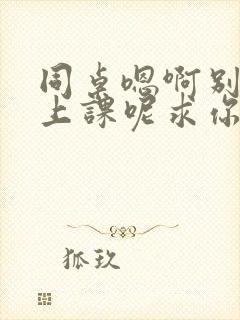 同桌嗯啊别
上課呢求你
狐玖